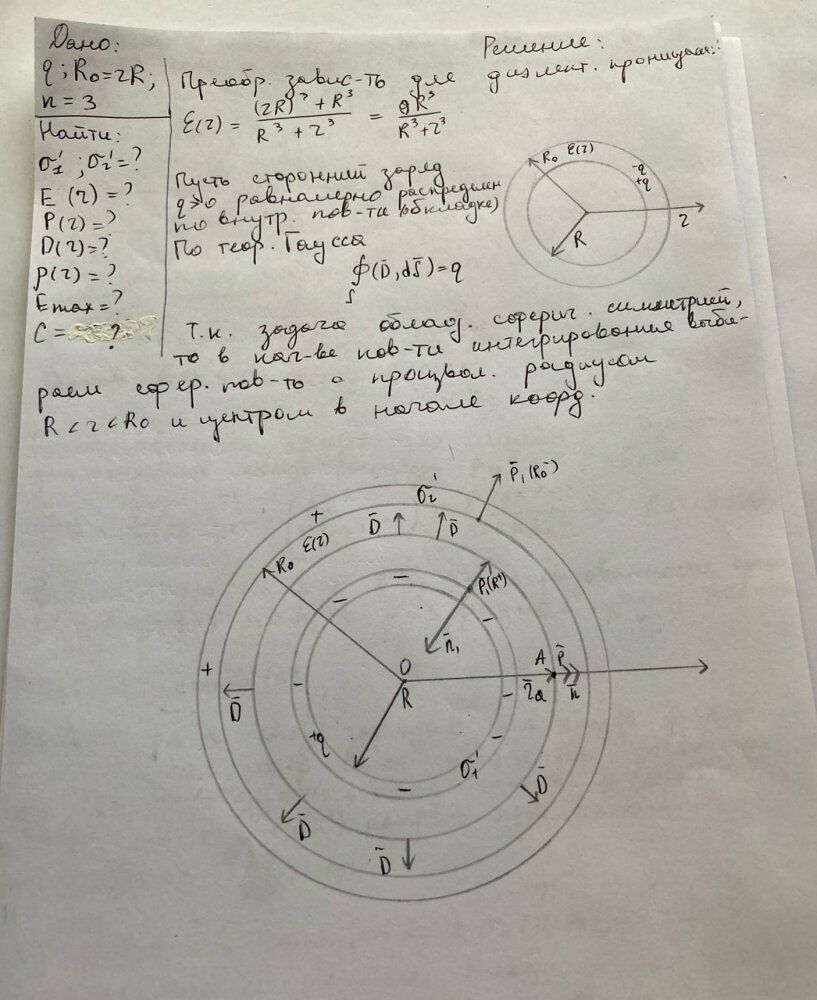 Дано:
q; R₀=2R;
n = 3
Найти:
σ₁'; σ₂'=?
E(r) = ?
P(r)=?
D(r)=?
ρ(r) = ?
Emax=?
C = ?
Решение:
Преобр. завис-ть для диэлект. проницаем.:
ε(r) = ((2R)³ + R³)/(R³ + r³) = 9R³/(R³+r³)
Пусть сторонний заряд
q>0 равномерно распределен
по внутр. пов-ти (обкладке)
По теор. Гаусса
∮(D̄, dS̄) = q
S
R₀ ε(r)
-q
+q
R
r
Т.к. задача облад. сферич. симметрией,
то в кач-ве пов-ти интегрирования выби-
раем сфер. пов-ть с произвол. радиусом
R < r < R₀ и центром в начале коорд.
P̄₁(R₀⁻)
σ₂'
+
D̄
D̄
R₀ ε(r)
P̄₁(R⁺)
n̄₁
+
O
R
A
P̄
r̄a
n̄
D̄
+q
σ₁'
D̄
D̄
D̄